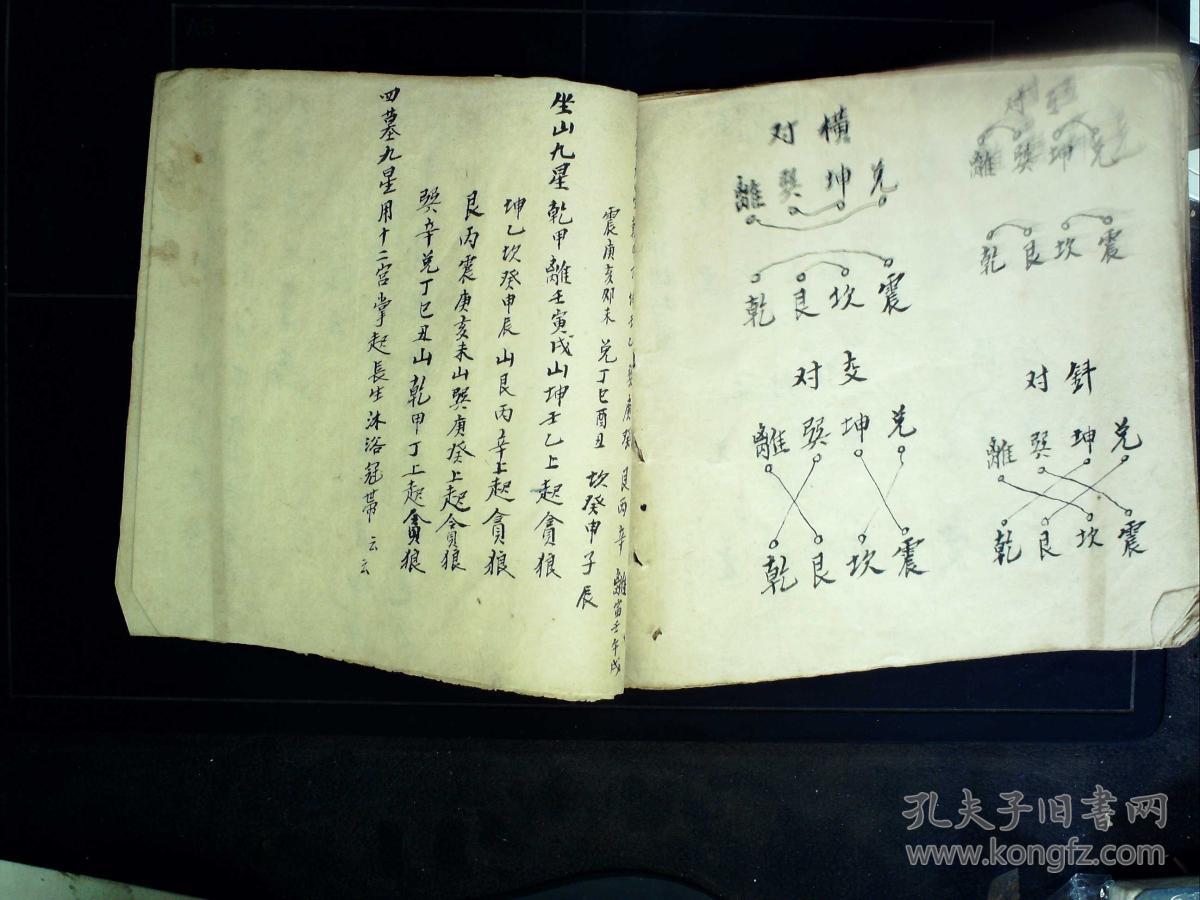 对
離巽坤兑
乾艮坎震
对斜
離巽坤兑
乾艮坎震
对橫
離巽坤兑
乾艮坎震
对交
離巽坤兑
乾艮坎震
艮丙辛 離寅壬午戌
震庚亥卯未 兑丁巳酉丑 坎癸申子辰
坐山九星 乾甲離壬寅戌山坤壬乙上起貪狼
坤乙坎癸申辰山艮丙辛上起貪狼
艮丙震庚亥未山巽庚癸上起貪狼
巽辛兑丁巳丑山乾甲丁上起貪狼
四墓九星用十二宮掌起長生沐浴冠帶云云
孔夫子旧書网
www.kongfz.com
A5